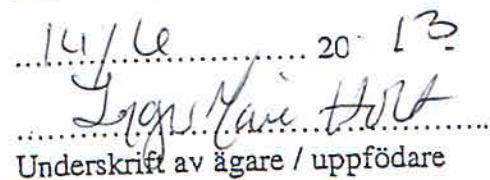 14/6 20 13
Marie Holt
Underskrift av ägare / uppfödare